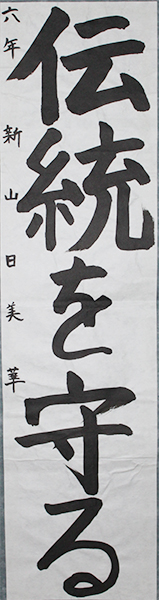 伝統を守る
六年 新山日美華